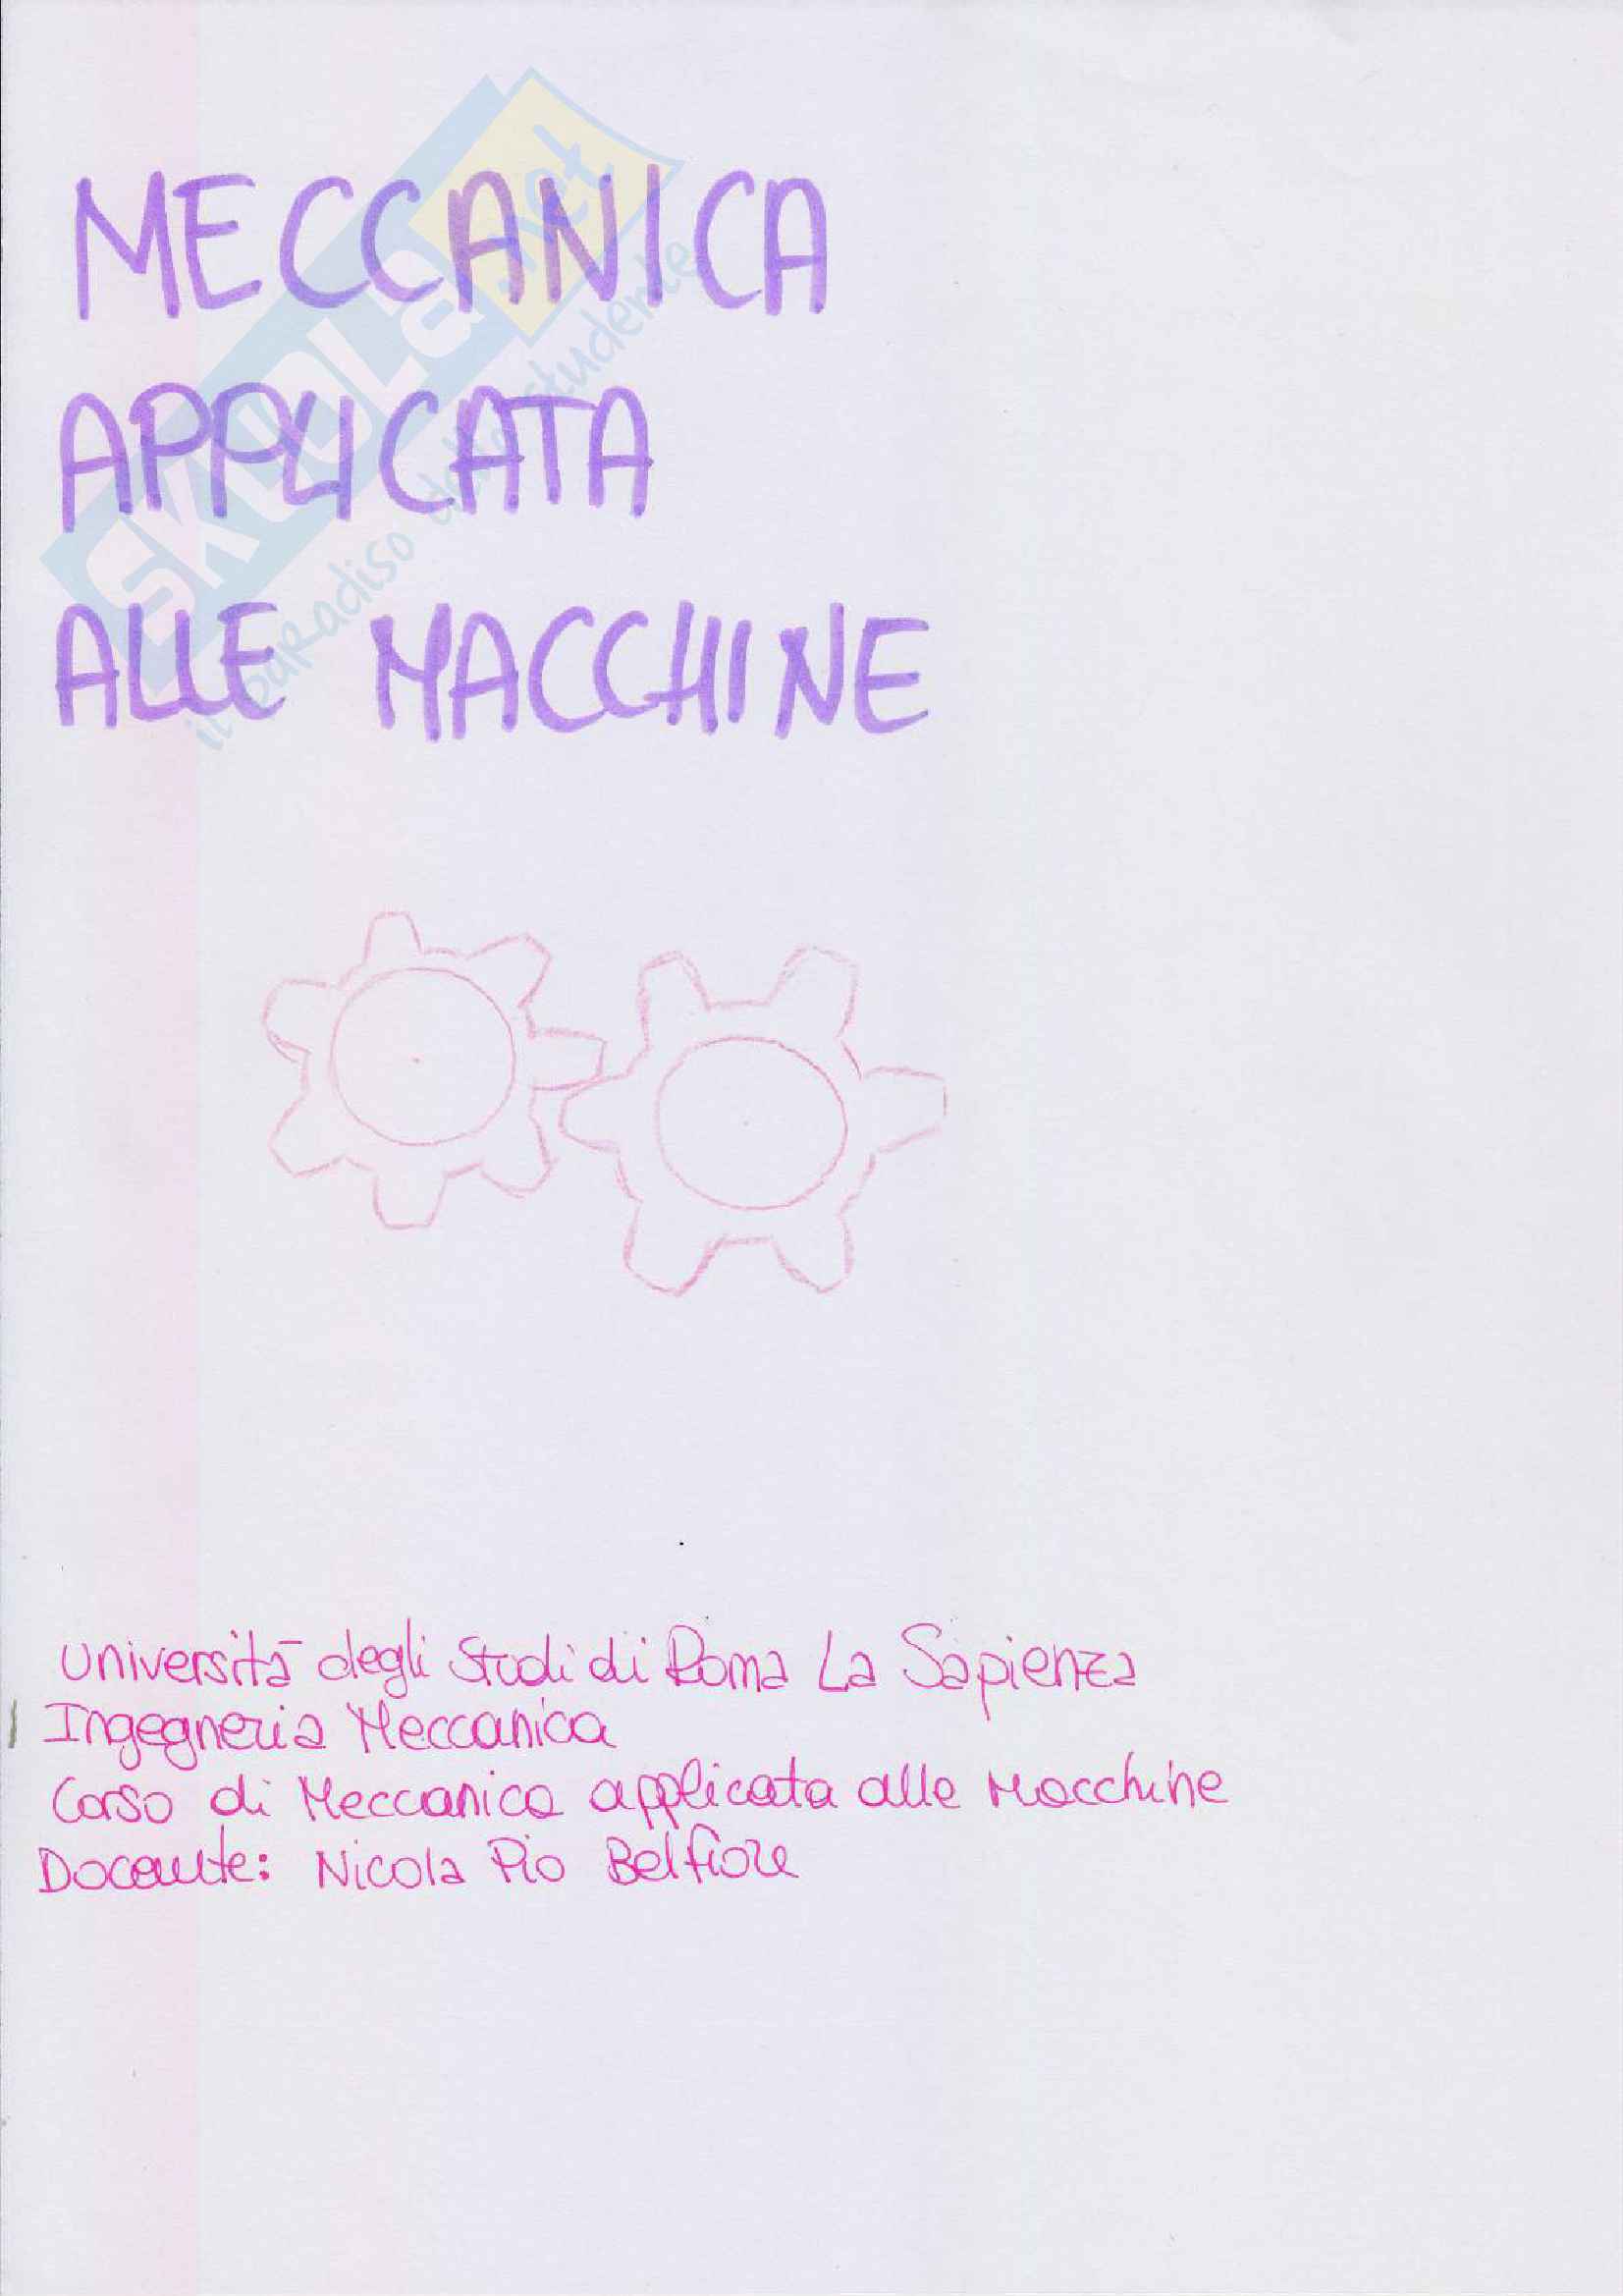 MECCANICA
APPLICATA
ALLE MACCHINE
SKUOLA.net
il paradiso dello studente
Università degli Studi di Roma La Sapienza
Ingegneria Meccanica
Corso di Meccanica applicata alle Macchine
Docente: Nicola Pio Belfiore